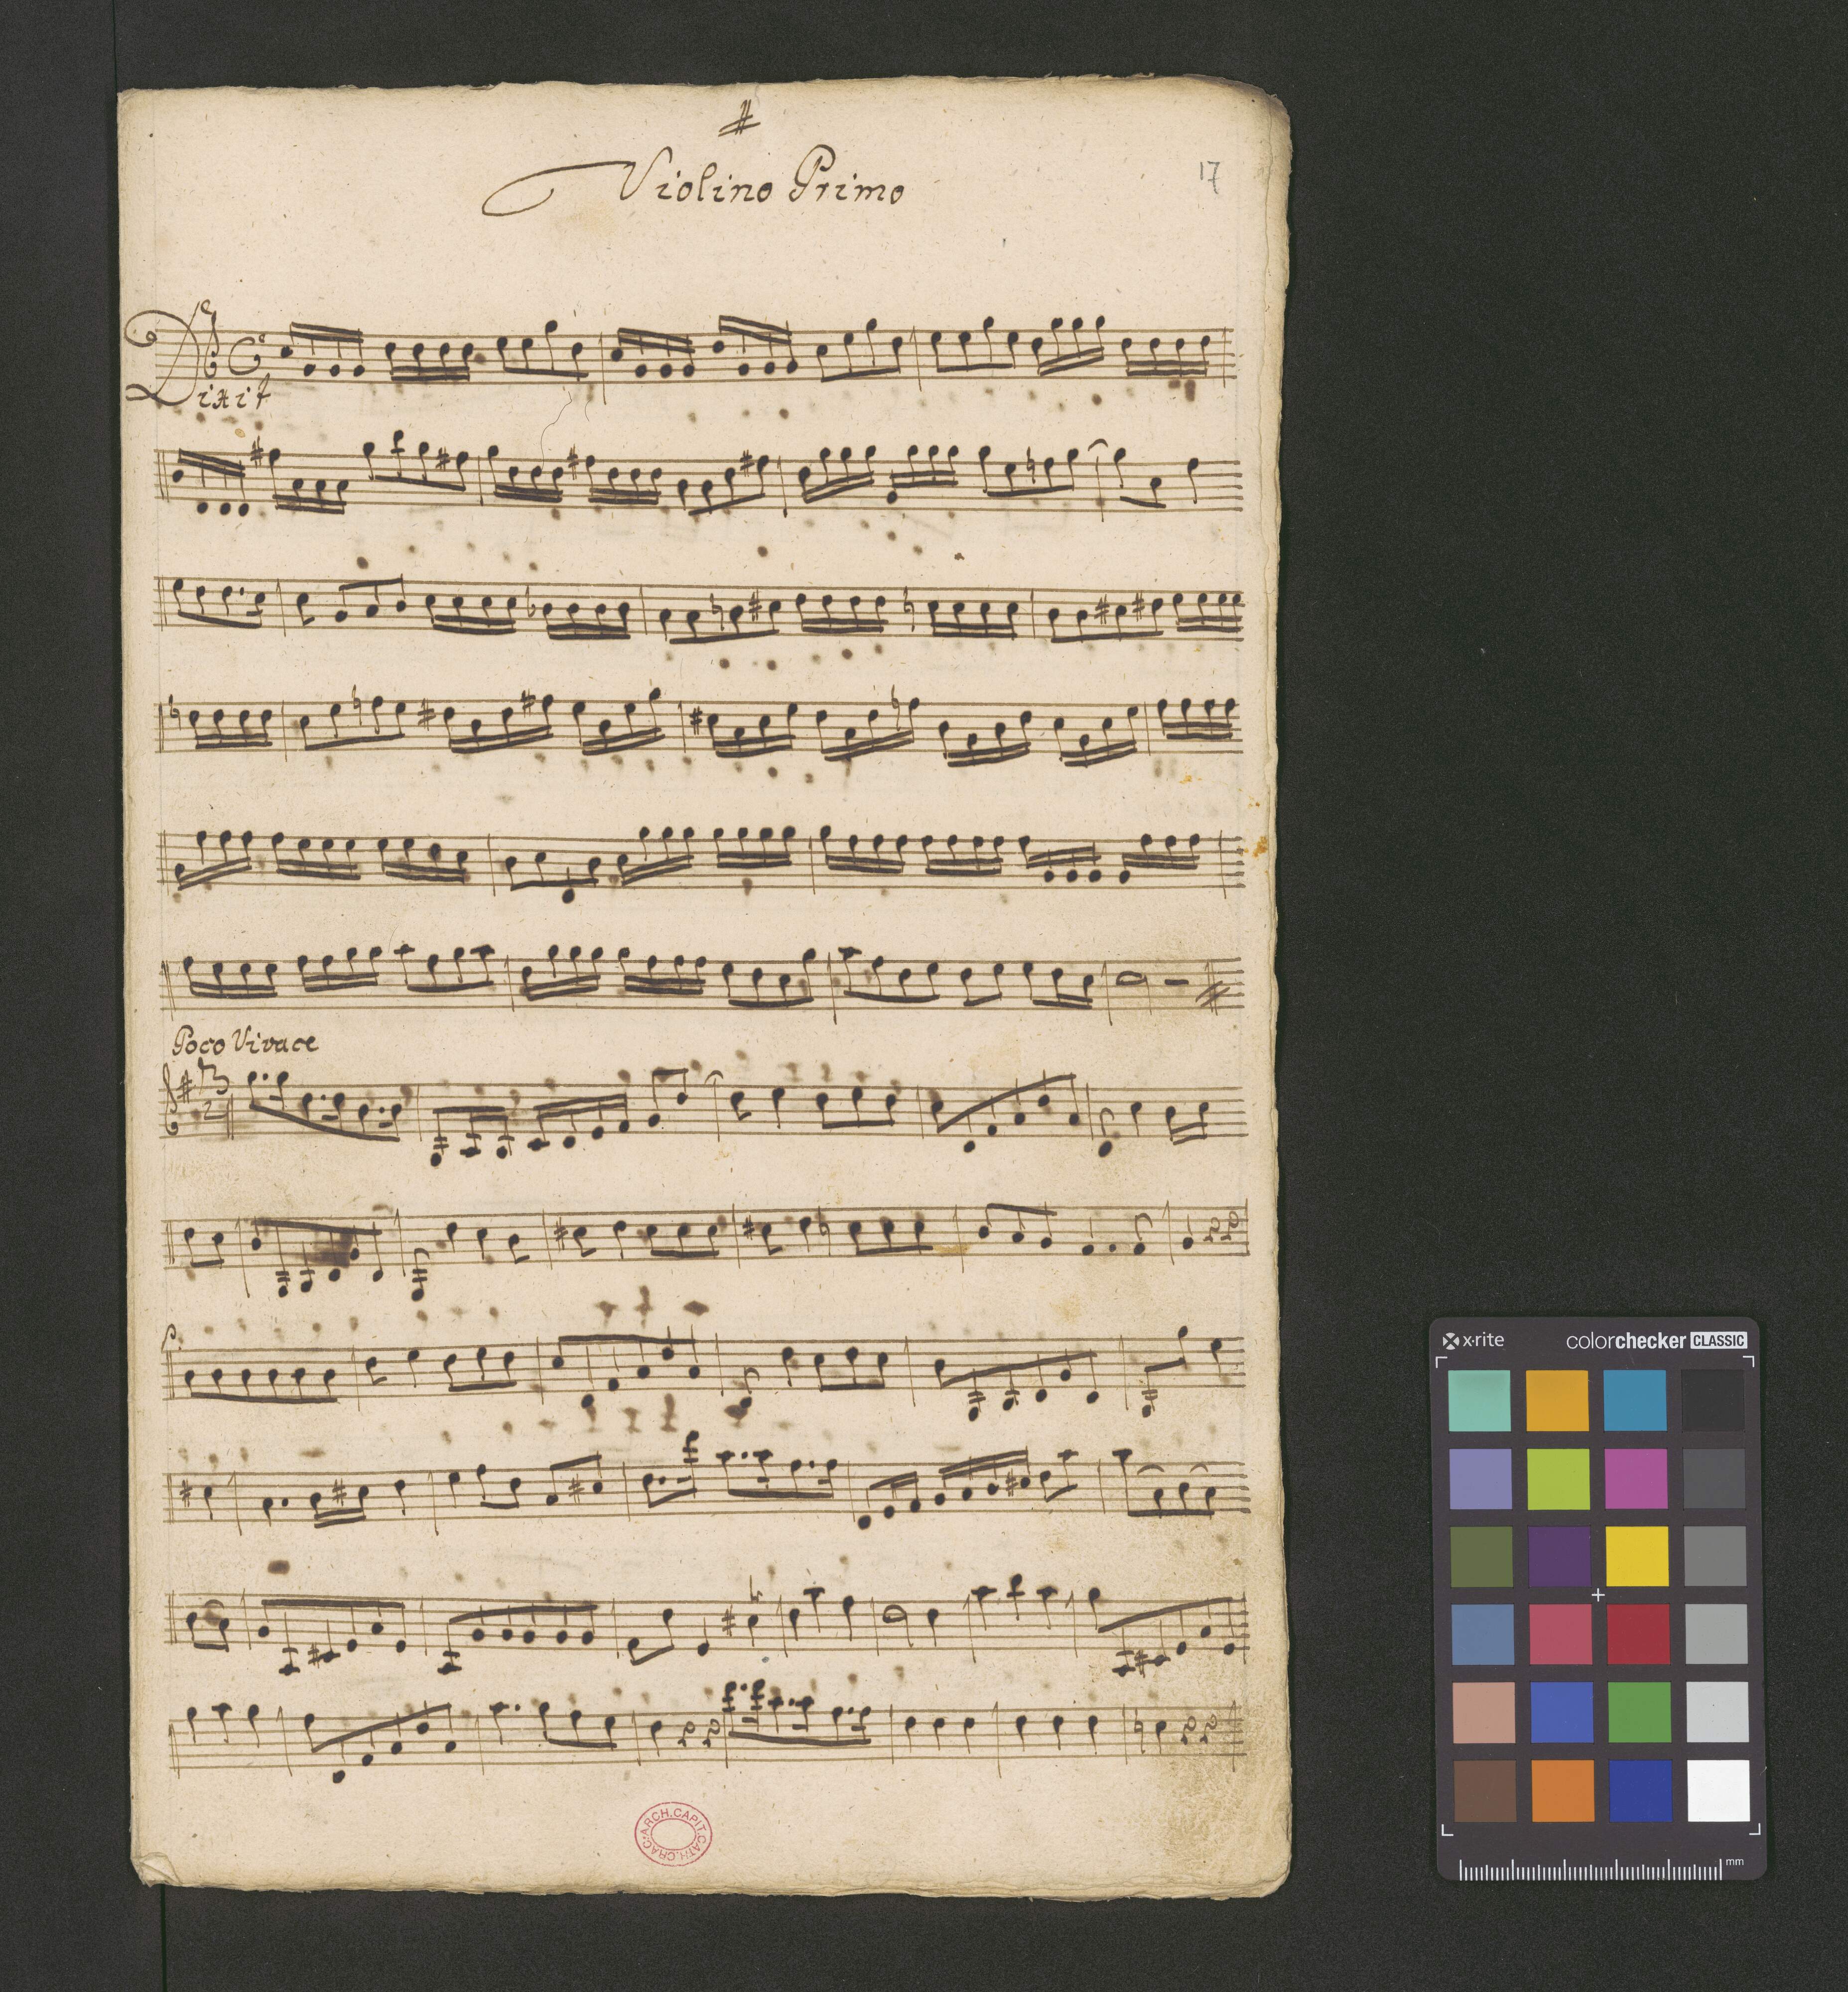 Violino Primo
17
Dixit
Poco Vivace
3
2
ARCH.CAPIT.CATH.CRAC.
x·rite
colorchecker CLASSIC
mm